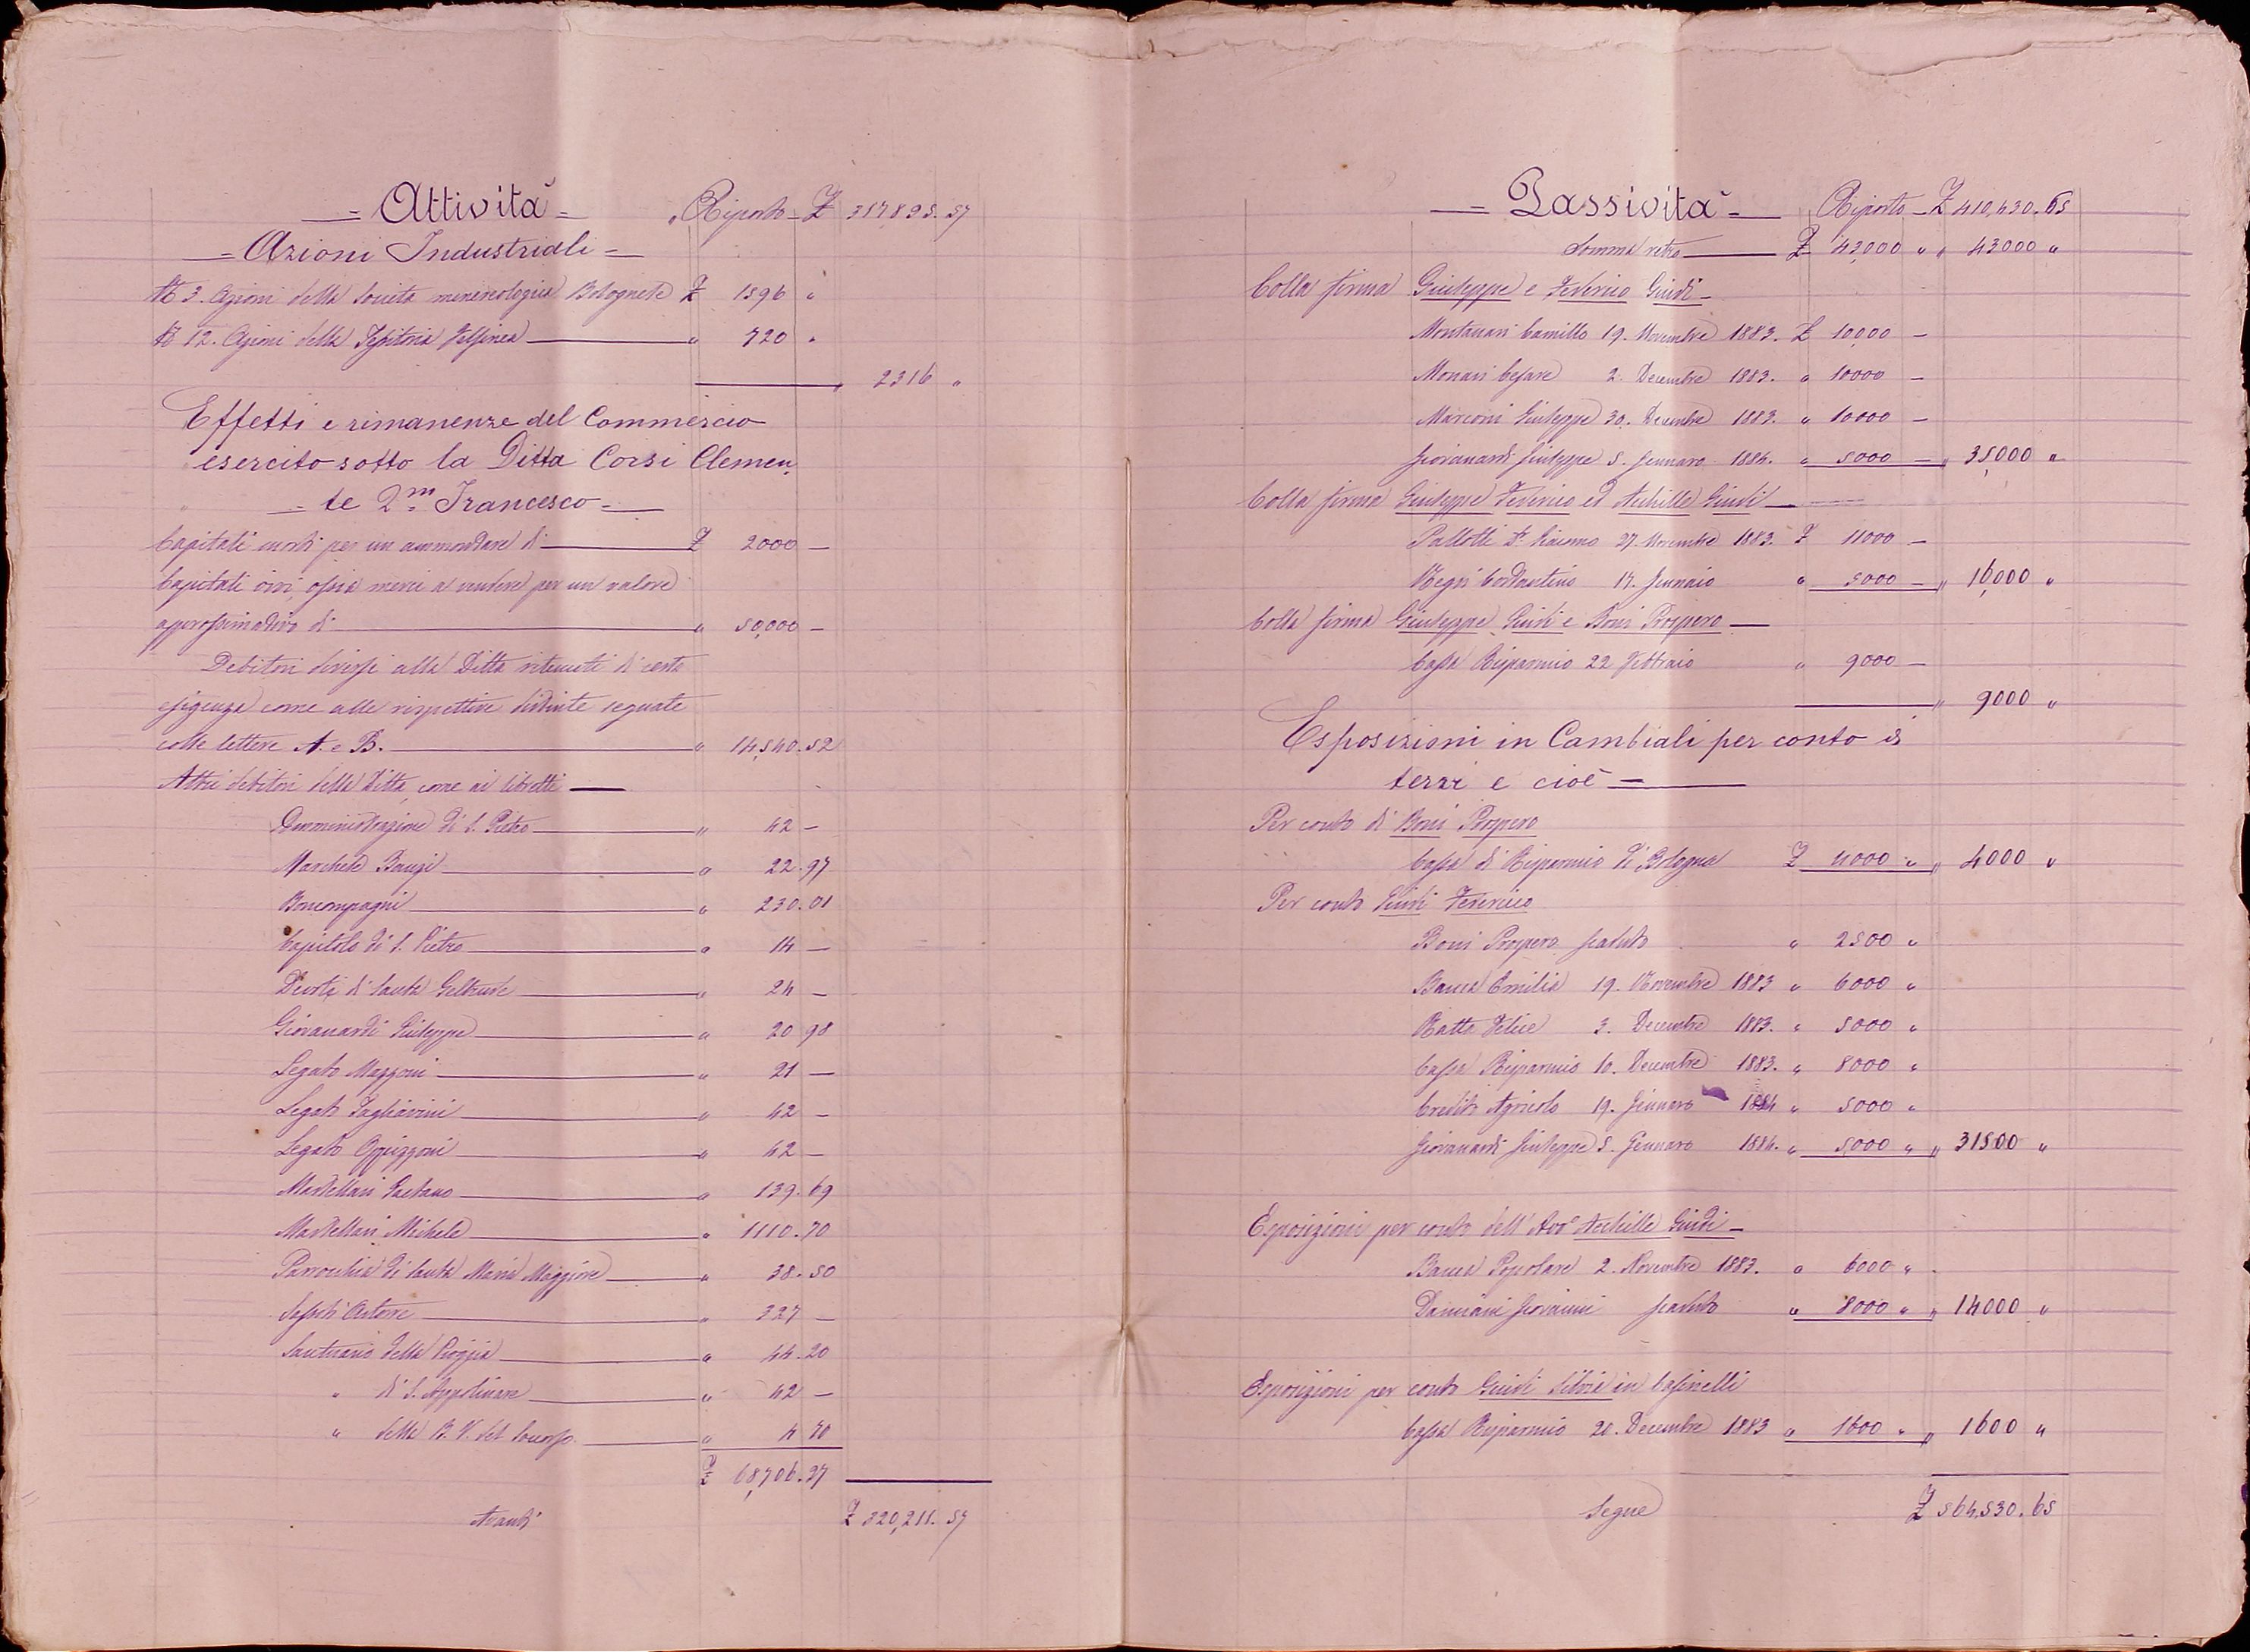 = Attività =
Riporto £ 317,895.57
= Azioni Industriali =
N° 3. Azioni della Società Bolognese £ 1596 "
N° 12. Azioni della Felsinea " 720 "
" 2316 "
Effetti e rimanenze del Commercio
esercito sotto la Ditta Corsi Clemen-
te 2m Francesco
Capitali morti per un ammontare di £ 2000 —
Capitali vivi, ossia merci a vendere per un valore
approssimativo di " 50,000 —
Debitori diversi alla Ditta ritenuti di certa
esigenza come alle rispettive distinte segnate
colle lettere A. e B. " 14,540.52
Altri debitori della Ditta, come ai libretti
Amministrazione di S. Pietro " 42 —
Marchese Banzi " 22.97
Boncompagni " 230.01
Capitolo di S. Pietro " 14 —
Devoti di Santa Geltrude " 24 —
Giovanardi Giuseppe " 20 98
Legato Mazzoni " 21 —
Legato Tagliavini " 42 —
Legato Oppizzoni " 42 —
Mastellari Gaetano " 139.69
Mastellari Michele " 1110.70
Parrocchia di Santa Maria Maggiore " 38.50
Sassoli Astorre " 327 —
Santuario della Pioggia " 44.20
" di S. Appolinare " 42 —
" della B. V. del Soccorso " 4 70
£ 68,706.27
Avanti £ 320,211.57
= Passività =
Riporto £ 410,430.65
Somma retro £ 43,000 " " 43000 "
Colla firma Giuseppe e Federico Guidi
Montanari Camillo 19. Novembre 1883. £ 10,000 —
Monari Cesare 2. Decembre 1883. " 10000 —
Marconi Giuseppe 30. Decembre 1883. " 10000 —
Giovanardi Giuseppe 5. Gennaro 1884. " 5000 — " 35,000 "
Colla firma Giuseppe Federico ed Achille Guidi
Pallotti Dr. Giacomo 27. Novembre 1883. £ 11000 —
Negri Costantino 17. Gennaio " 5000 — " 16,000 "
Colla firma Giuseppe Guidi e Boni Prospero
Cassa Risparmio 22 Febbraio " 9000 —
" 9000 "
Esposizioni in Cambiali per conto di
terzi e cioè =
Per conto di Boni Prospero
Cassa di Risparmio di Bologna £ 4000 " " 4000 "
Per conto Guidi Federico
Boni Prospero scaduto " 2500 "
Banca Emilia 19. Novembre 1883 " 6000 "
Ratta Felice 3. Decembre 1883. " 5000 "
Cassa Risparmio 10. Decembre 1883. " 8000 "
Credito Agricolo 19. Gennaro 1884 " 5000 "
Giovanardi Giuseppe 5. Gennaro 1884. " 5,000 " " 31500 "
Esposizioni per conto dell'Avv° Achille Guidi
Banca Popolare 2. Novembre 1883. " 6000 "
Damiani Giovanni scaduto " 8000 " " 14000 "
Esposizioni per conto Guidi Silvia in Casinelli
Cassa Risparmio 20. Decembre 1883 " 1600 " " 1600 "
Segue £ 564,530.65